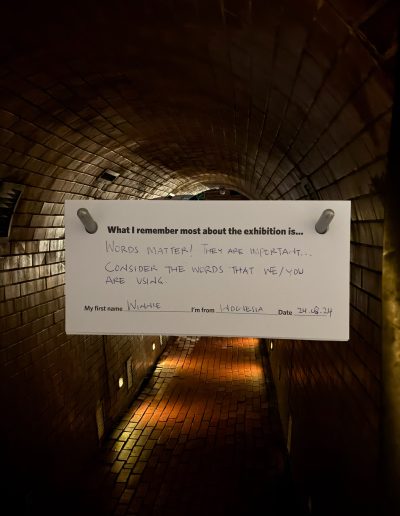 What I remember most about the exhibition is...
WORDS MATTER! THEY ARE IMPORTANT...
CONSIDER THE WORDS THAT WE/YOU
ARE USING.
My first name WINNIE I'm from INDONESIA Date 24.08.24